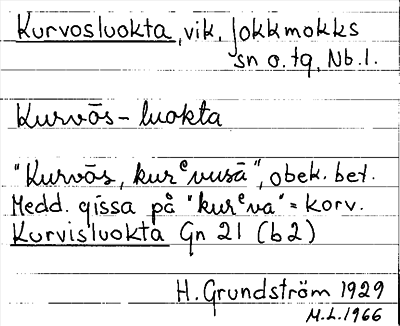 Kurvosluokta, vik, Jokkmokks
sn o. tg, Nb. l.
Kurvōs-luokta
"Kurvōs, kurᵉvusā", obek. bet.
Medd. gissa på "kurᵉva" = korv.
Kurvisluokta Gn 21 (b2)
H. Grundström 1929
M.L. 1966